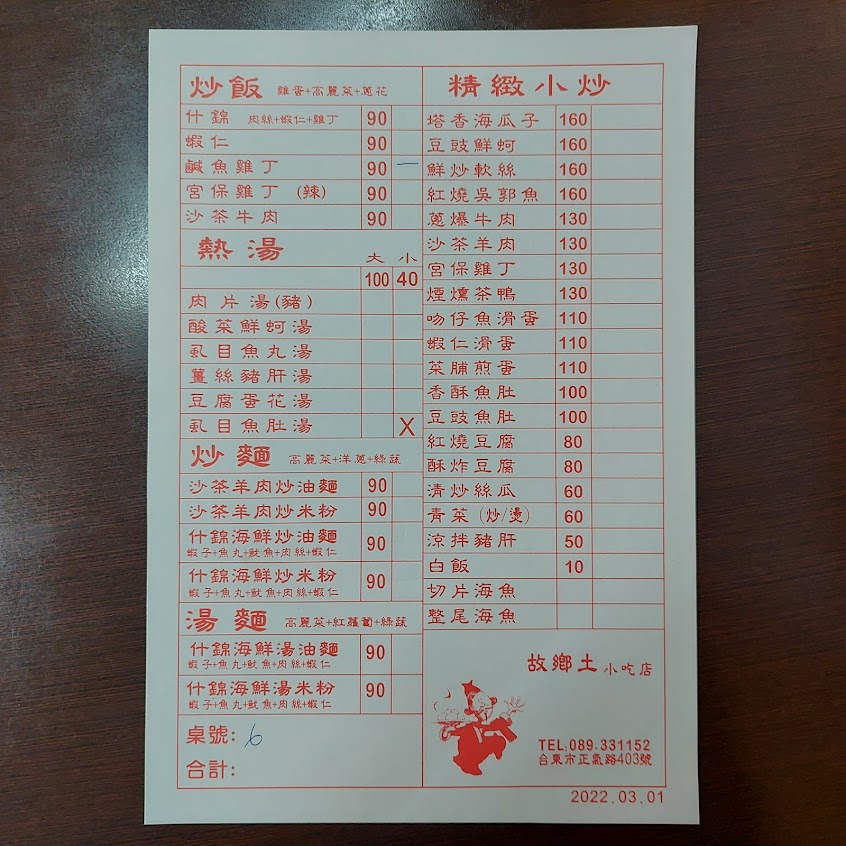 炒飯 雞蛋+高麗菜+蔥花
什錦 肉絲+蝦仁+雞丁 90
蝦仁 90
鹹魚雞丁 90 一
宮保雞丁 (辣) 90
沙茶牛肉 90
熱湯 大 小
100 40
肉片湯(豬)
酸菜鮮蚵湯
虱目魚丸湯
薑絲豬肝湯
豆腐蛋花湯
虱目魚肚湯 X
炒麵 高麗菜+洋蔥+綠蔬
沙茶羊肉炒油麵 90
沙茶羊肉炒米粉 90
什錦海鮮炒油麵 90
蝦子+魚丸+魷魚+肉絲+蝦仁
什錦海鮮炒米粉 90
蝦子+魚丸+魷魚+肉絲+蝦仁
湯麵 高麗菜+紅蘿蔔+綠蔬
什錦海鮮湯油麵 90
蝦子+魚丸+魷魚+肉絲+蝦仁
什錦海鮮湯米粉 90
蝦子+魚丸+魷魚+肉絲+蝦仁
桌號: 6
合計:
精緻小炒
塔香海瓜子 160
豆豉鮮蚵 160
鮮炒軟絲 160
紅燒吳郭魚 160
蔥爆牛肉 130
沙茶羊肉 130
宮保雞丁 130
煙燻茶鴨 130
吻仔魚滑蛋 110
蝦仁滑蛋 110
菜脯煎蛋 110
香酥魚肚 100
豆豉魚肚 100
紅燒豆腐 80
酥炸豆腐 80
清炒絲瓜 60
青菜 (炒/燙) 60
涼拌豬肝 50
白飯 10
切片海魚
整尾海魚
故鄉土 小吃店
TEL:089-331152
台東市正氣路403號
2022.03.01